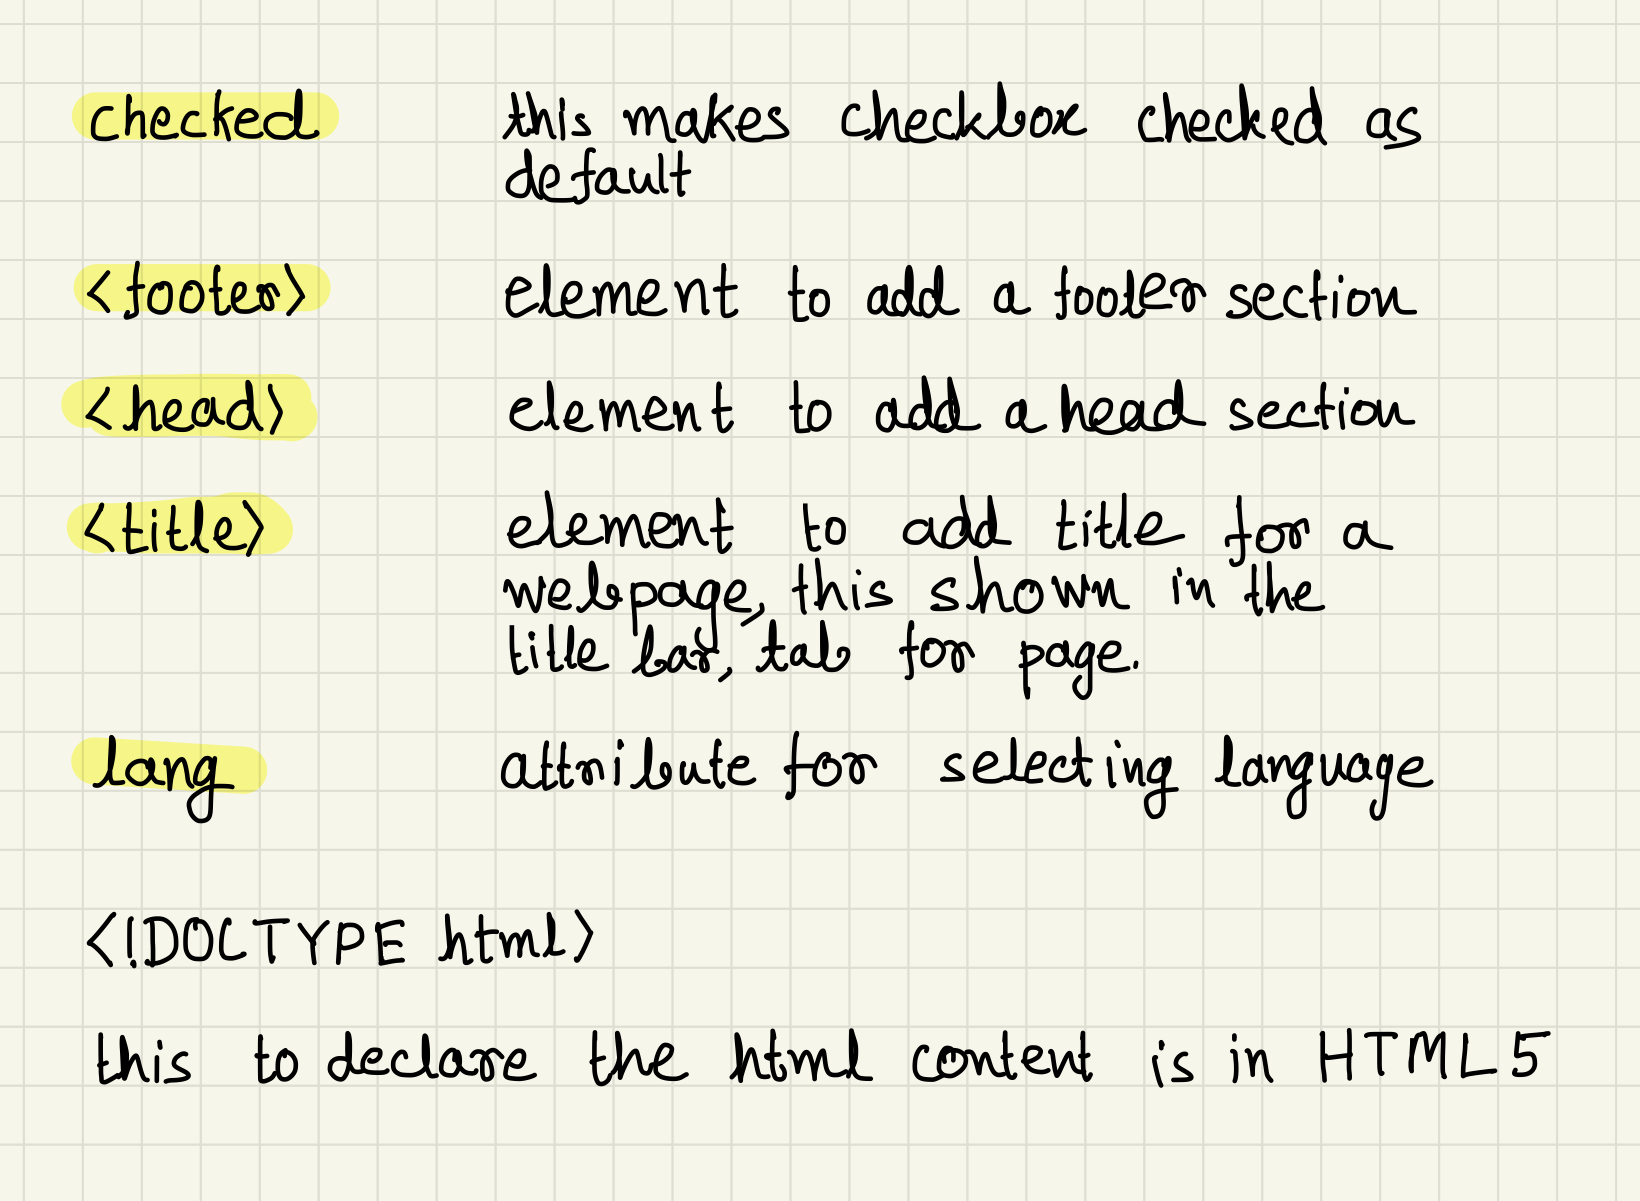 checked this makes checkbox checked as
default
<footer> element to add a footer section
<head> element to add a head section
<title> element to add title for a
webpage, this shown in the
title bar, tab for page.
lang attribute for selecting language
<!DOCTYPE html>
this to declare the html content is in HTML5